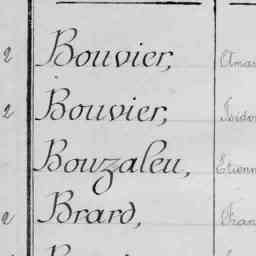 2 Bouvier, Amar
2 Bouvier, Isidor
Bouzaleu, Etienn
2 Brard, Fran